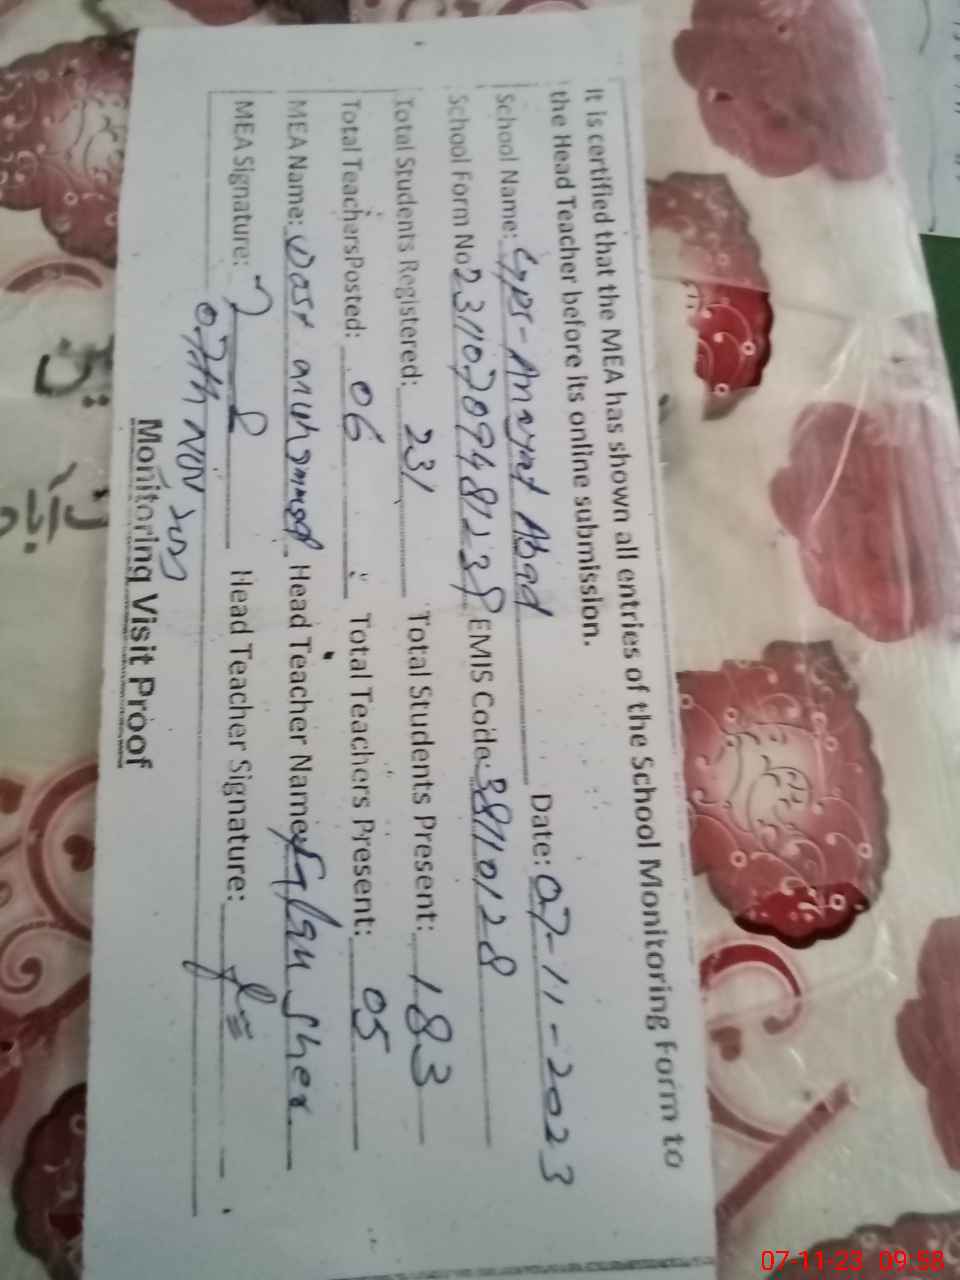 It is certified that the MEA has shown all entries of the School Monitoring Form to
the Head Teacher before its online submission.
School Name: GPS-Anayat Abad Date: 07-11-2023
School Form No 23110709481238 EMIS Code: 38110128
Total Students Registered: 231 Total Students Present: 183
Total TeachersPosted: 06 Total Teachers Present: 05
MEA Name: Dost Muhammad Head Teacher Name: Sher
MEA Signature: Head Teacher Signature:
07th NOV
Monitoring Visit Proof
07-11-23 09:58